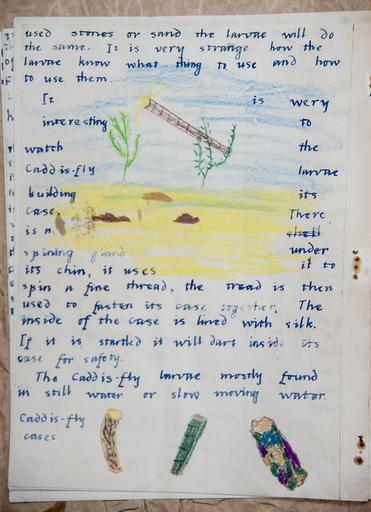 used stones or sand the larvae will do
the same. It is very strange how the
larvae know what thing to use and how
to use them.
It is very
interesting to
watch the
Caddis-fly larvae
building its
case. There
is a shell
spining gland under
its chin, it uses it to
spin a fine thread, the tread is then
used to fasten its case together. The
inside of the case is lined with silk.
If it is startled it will dart inside its
case for safety.
The Caddis-fly larvae mostly found
in still water or slow moving water.
Caddis-fly
cases